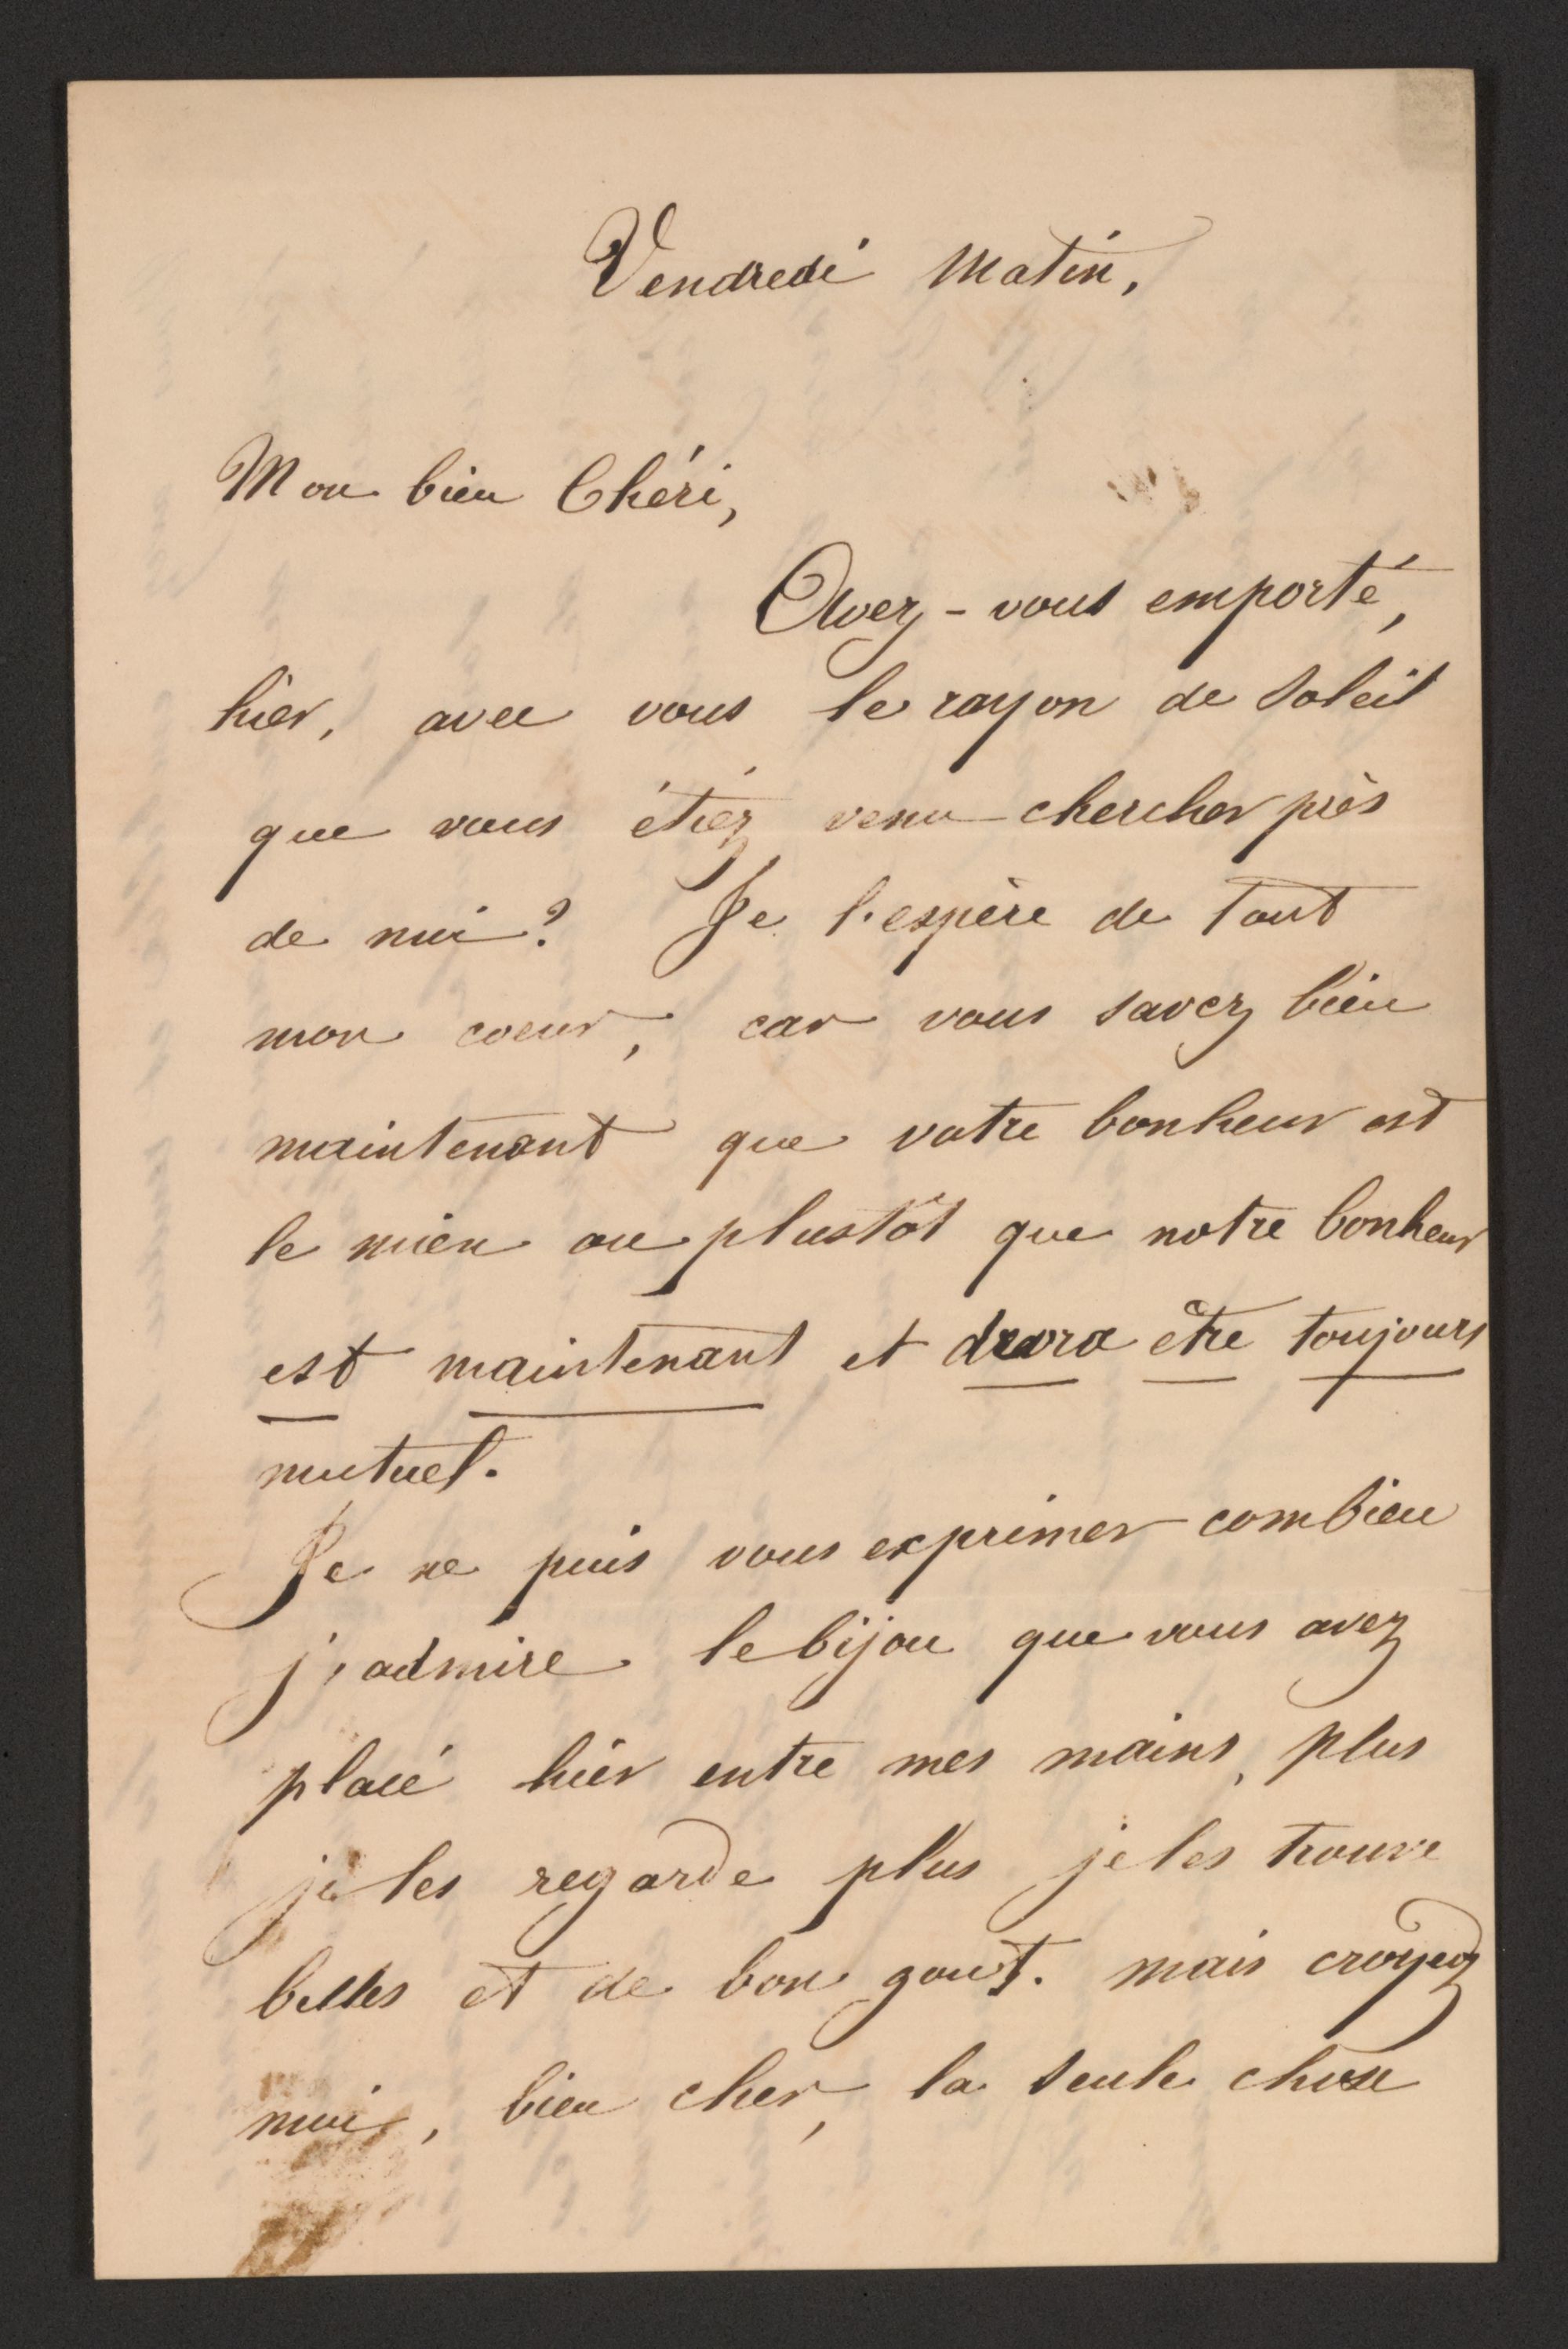 Vendredi Matin,
Mon bien Chéri,
Avez-vous emporté,
hier, avec vous le rayon de soleil
que vous étiez venu chercher près
de moi? Je l'espère de tout
mon coeur, car vous savez bien
maintenant que votre bonheur est
le mien ou plustôt que notre bonheur
est maintenant et devra être toujours
mutuel.
Je ne puis vous exprimer combien
j'admire le bijou que vous avez
placé hier entre mes mains, plus
je les regarde plus je les trouve
belles et de bon gout. mais croyez
moi, bien cher, la seule chose